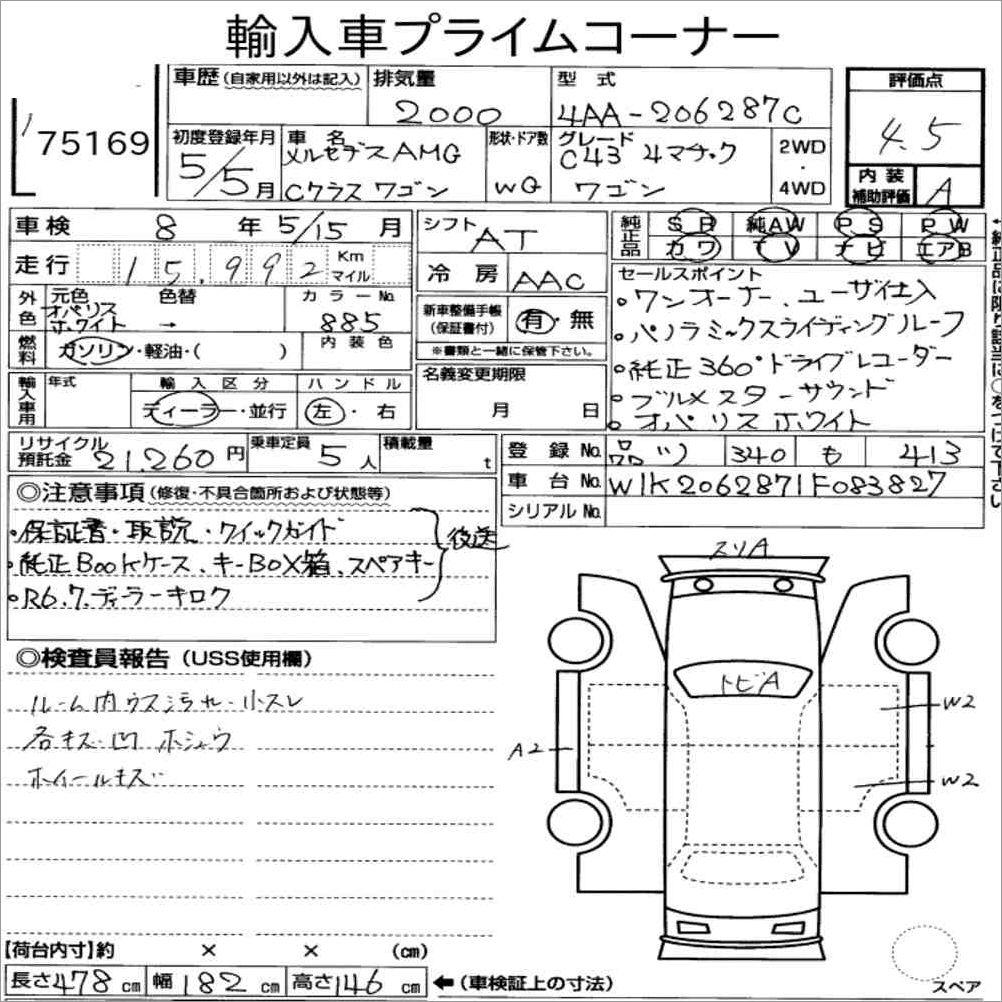 輸入車プライムコーナー
175169
車歴(自家用以外は記入)
排気量 2000
型式 4AA-206287C
評価点 4.5
初度登録年月 5/5月
車名 メルセデスAMG
Cクラス ワゴン
形状・ドア数 WG
グレード C43 4マチック
ワゴン
2WD・4WD
内装補助評価 A
車検 8年 5/15月
シフト AT
純正品 SR 純AW PS PW
カワ TV ナビ エアB
走行 15,992 Km マイル
冷房 AAC
セールスポイント
・ワンオーナー、ユーザ仕入
・パノラミックスライディングルーフ
・純正360°ドライブレコーダー
・ブルメスターサウンド
・オパリスホワイト
外色 元色 オパリスホワイト 色替 →
カラーNo. 885
内装色
新車整備手帳(保証書付) 有・無
※書類と一緒に保管下さい。
燃料 ガソリン・軽油・( )
名義変更期限 月 日
輸入車用 年式 輸入区分 ハンドル
ディーラー・並行 左・右
リサイクル預託金 21,260円
乗車定員 5人
積載量 t
登録No. 品川 340 も 413
車台No. W1K2062871F083827
シリアルNo.
◎注意事項(修復・不具合箇所および状態等)
・保証書・取説・クイックガイド
・純正Bookケース、キーBOX箱、スペアキー
後送
・R6.7.ディーラーキロク
◎検査員報告(USS使用欄)
ルーム内ウスヨゴレ・小スレ
各キズ・凹 ホシュウ
ホイールキズ
スリA
トビA
A2
W2
W2
【荷台内寸】約 × × (cm)
長さ478cm 幅182cm 高さ146cm ←(車検証上の寸法)
スペア